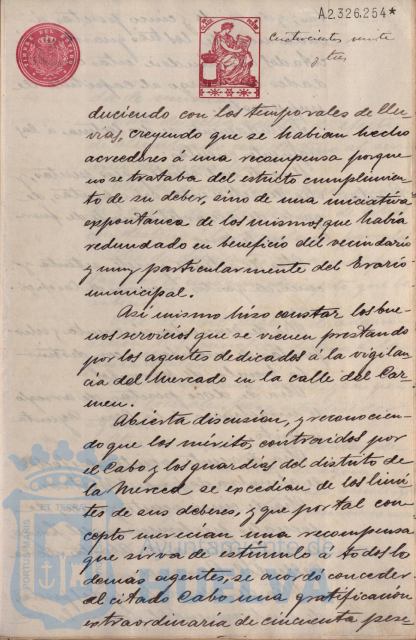 A.2.326.254*
Cuatrocientos veinte
y tres
duciendo con los temporales de llu-
vias, creyendo que se habian hecho
acreedores á una recompensa porque
no se trataba del estricto cumplimien-
to de su deber, sino de una iniciativa
expontánea de los mismos que habia
redundado en beneficio del vecindario
y muy particularmente del Erario
municipal.
Asi mismo hizo constar los bue-
nos servicios que se vienen prestando
por los agentes dedicados á la vigilan-
cia del Mercado en la calle del Car-
men.
Abierta discusion, y reconocien-
do que los méritos contraidos por
el Cabo y los guardias del distrito de
la Merced se excedian de los limi-
tes de sus deberes, y que por tal con-
cepto merecian una recompensa
que sirva de estímulo á todos los
demás agentes, se acordó conceder
al citado Cabo una gratificación
extraordinaria de cincuenta pese-
PORTUS MARIS
ET TERRAE